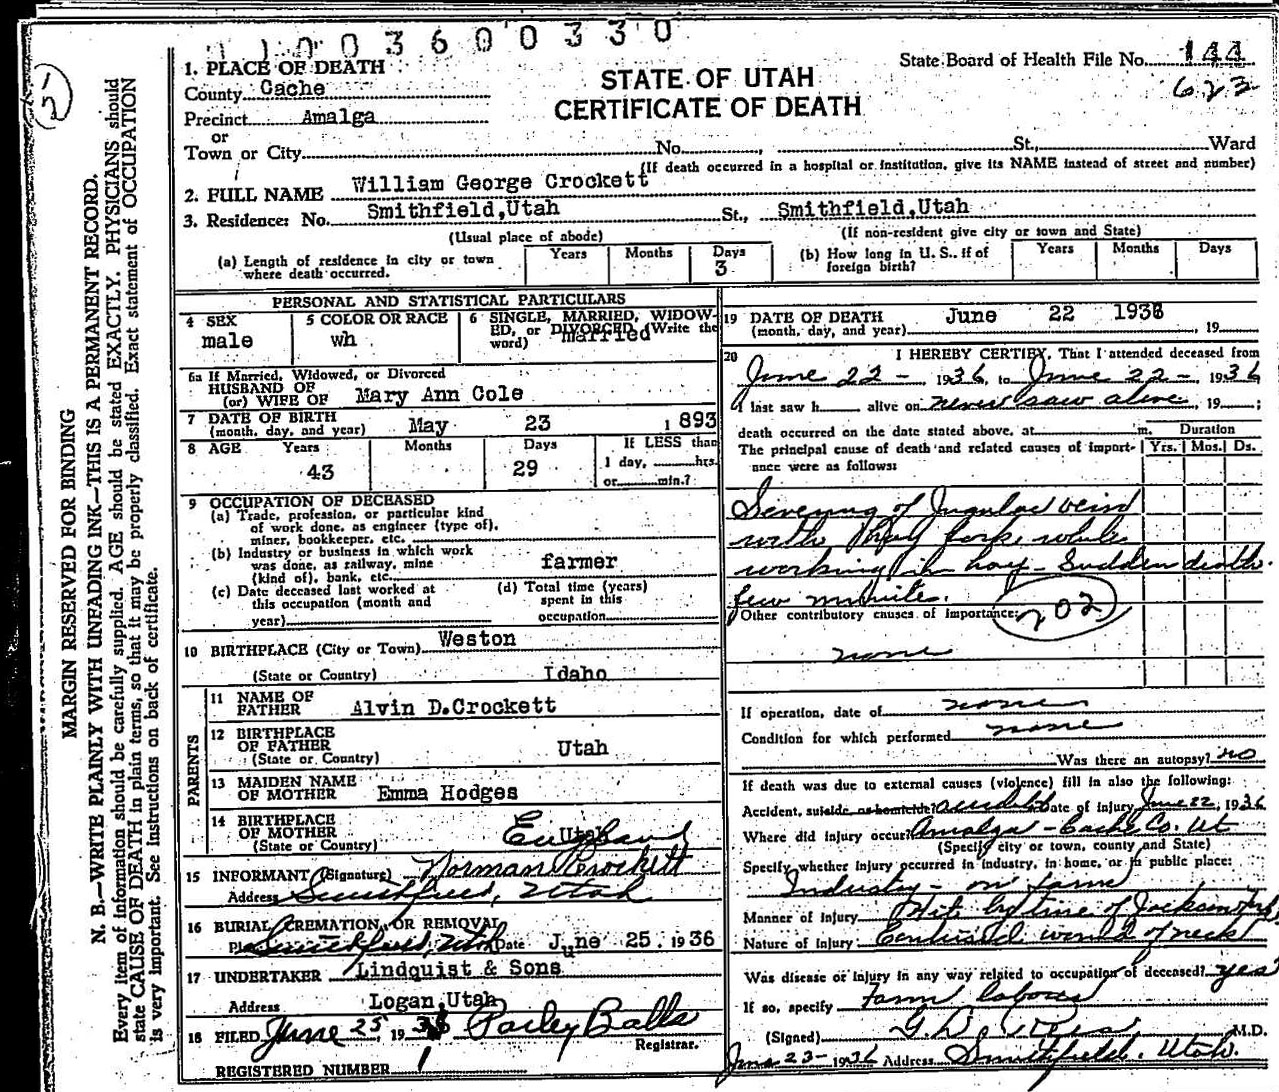 1 1 0 0 3 6 0 0 3 3 0
State Board of Health File No. 144
623
STATE OF UTAH
CERTIFICATE OF DEATH
1. PLACE OF DEATH
County Cache
Precinct Amalga
or
Town or City No. , St., Ward
(If death occurred in a hospital or institution, give its NAME instead of street and number)
2. FULL NAME William George Crockett
3. Residence: No. Smithfield,Utah St., Smithfield,Utah
(Usual place of abode) (If non-resident give city or town and State)
(a) Length of residence in city or town where death occurred. Years Months Days 3
(b) How long in U. S., if of foreign birth? Years Months Days
MARGIN RESERVED FOR BINDING
N. B.—WRITE PLAINLY WITH UNFADING INK—THIS IS A PERMANENT RECORD.
Every item of information should be carefully supplied. AGE should be stated EXACTLY. PHYSICIANS should
state CAUSE OF DEATH in plain terms, so that it may be properly classified. Exact statement of OCCUPATION
is very important. See instructions on back of certificate.
PERSONAL AND STATISTICAL PARTICULARS
4 SEX male
5 COLOR OR RACE wh
6 SINGLE, MARRIED, WIDOWED, or DIVORCED (Write the word) married
6a If Married, Widowed, or Divorced
HUSBAND OF
(or) WIFE OF Mary Ann Cole
7 DATE OF BIRTH
(month, day, and year) May 23 1893
8 AGE Years 43 Months Days 29
If LESS than
1 day, hrs.
or min.?
9 OCCUPATION OF DECEASED
(a) Trade, profession, or particular kind
of work done, as engineer (type of),
miner, bookkeeper, etc.
(b) Industry or business in which work
was done, as railway, mine
(kind of), bank, etc. farmer
(c) Date deceased last worked at
this occupation (month and
year)
(d) Total time (years)
spent in this
occupation
10 BIRTHPLACE (City or Town) Weston
(State or Country) Idaho
PARENTS
11 NAME OF
FATHER Alvin D.Crockett
12 BIRTHPLACE
OF FATHER
(State or Country) Utah
13 MAIDEN NAME
OF MOTHER Emma Hodges
14 BIRTHPLACE
OF MOTHER
(State or Country) Utah England
15 INFORMANT (Signature) Norman Crockett
Address Smithfield, Utah
16 BURIAL, CREMATION, OR REMOVAL
Place Smithfield, Utah Date June 25. 1936
17 UNDERTAKER Lindquist & Sons
Address Logan,Utah
18 FILED June 25, 1936 Parley Balls
Registrar.
REGISTERED NUMBER 1
19 DATE OF DEATH
(month, day, and year) June 22 1936 , 19
20 I HEREBY CERTIFY, That I attended deceased from
June 22 - 1936, to June 22 -, 1936
I last saw h alive on never saw alive, 19 ;
death occurred on the date stated above, at m. Duration
The principal cause of death and related causes of importance were as follows: Yrs. Mos. Ds.
Severing of Jugular vein
with Hay fork while
working in hay - Sudden death.
few minutes.
Other contributory causes of importance: 202
none
If operation, date of none
Condition for which performed none
Was there an autopsy? no
If death was due to external causes (violence) fill in also the following:
Accident, suicide or homicide? accident Date of injury June 22, 1936
Where did injury occur? Amalga - Cache Co. Ut
(Specify city or town, county and State)
Specify whether injury occurred in industry, in home, or in public place:
Industry - on farm
Manner of Injury Hit by tine of Jackson fork
Nature of Injury wound of neck
Was disease or injury in any way related to occupation of deceased? yes
If so, specify Farm laborer
(Signed) M.D.
June 23 - 1936 Address Smithfield, Utah.